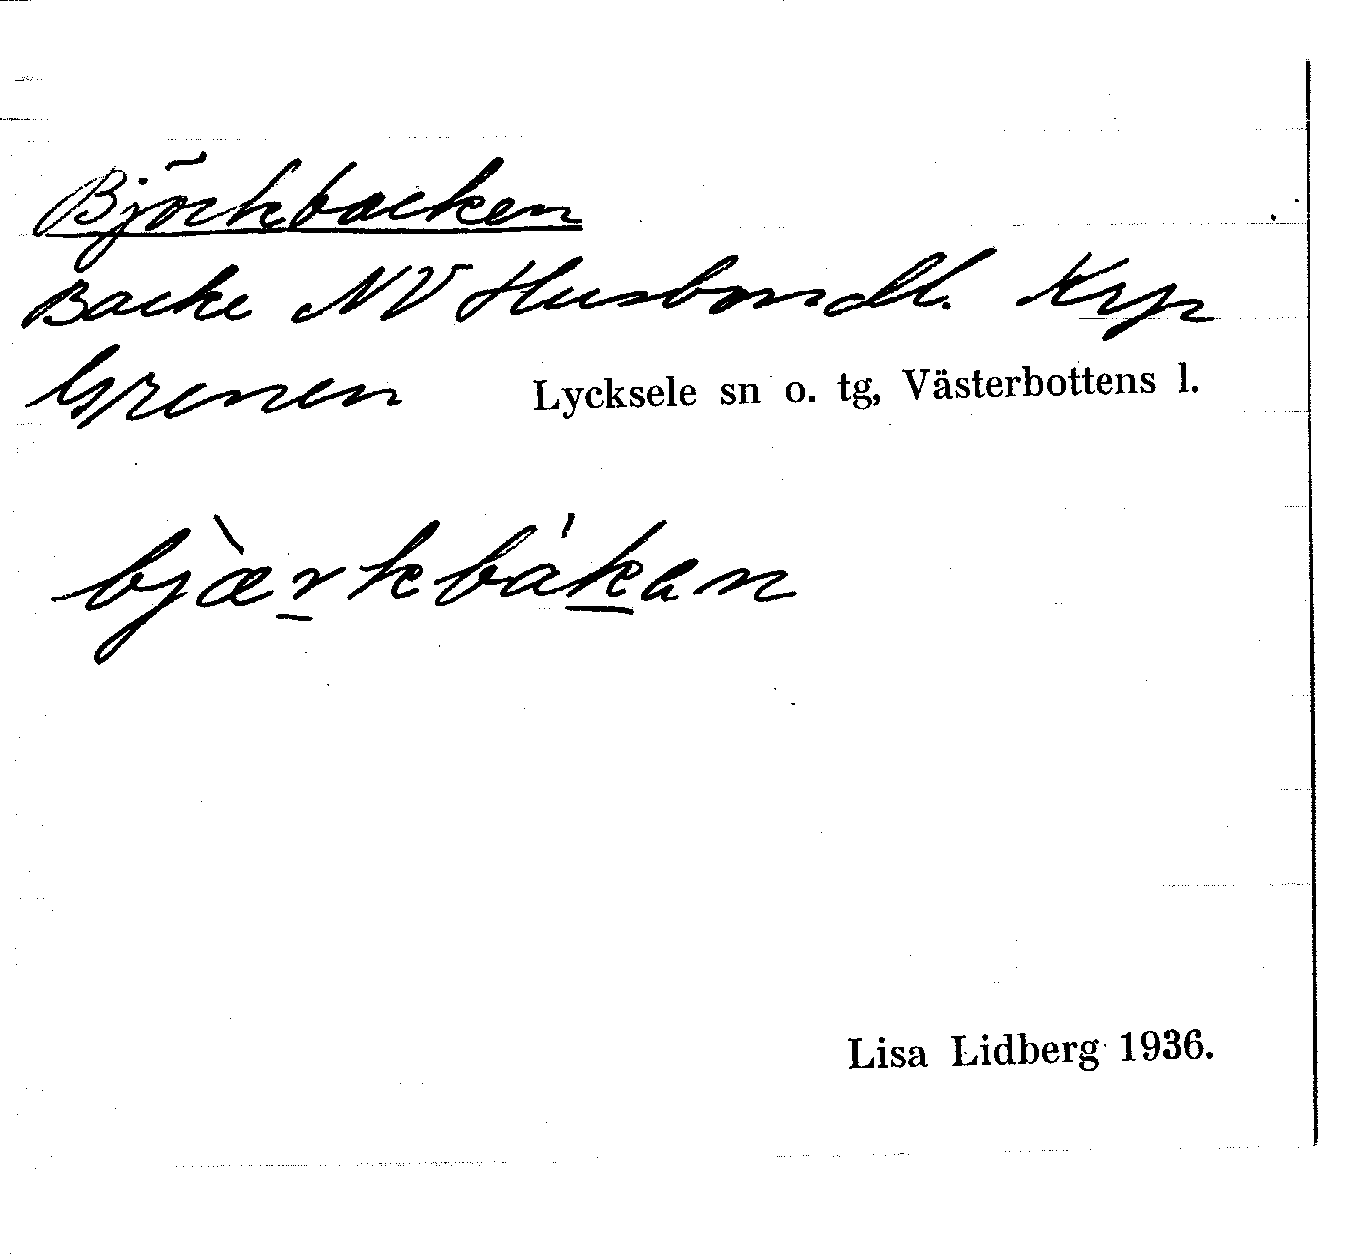 Björkbacken
Backe NV Husbondl. Krp
Grenen Lycksele sn o. tg, Västerbottens l.
bjæ̀rkbákan
Lisa Lidberg 1936.